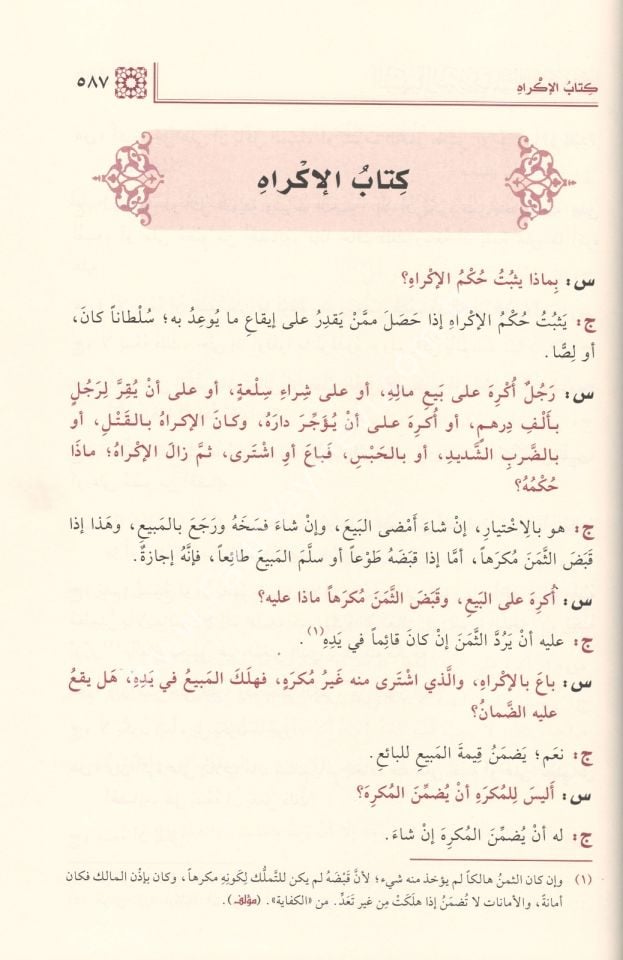 كِتابُ الإكْراهِ
٥٨٧
كِتَابُ الإكْراهِ
س: بِماذا يَثبُتُ حُكْمُ الإكْراهِ؟
ج: يَثبُتُ حُكْمُ الإكْراهِ إذا حَصَلَ ممَّنْ يَقدِرُ على إيقاعِ ما يُوعِدُ به؛ سُلْطاناً كانَ،
أو لِصًّا.
س: رَجُلٌ أُكْرِهَ على بَيعِ مالِهِ، أو على شِراءِ سِلْعةٍ، أو على أنْ يُقِرَّ لِرَجُلٍ
بـأَلْـفِ دِرهـمٍ، أو أُكـرِهَ عـلـى أنْ يُـؤَجِّـرَ دارَهُ، وكـانَ الإكـراهُ بـالـقَتْـلِ، أو
بالضَّربِ الشَّديدِ، أو بالحَبْسِ، فَباعَ أوِ اشْتَرى، ثمَّ زالَ الإكْراهُ؛ ماذا
حُكْمُهُ؟
ج: هو بالاِختيارِ، إنْ شاءَ أَمْضى البَيعَ، وإنْ شاءَ فسَخَهُ ورَجَعَ بالمَبيعِ، وهَذا إذا
قَبَضَ الثَّمَنَ مُكرَهاً، أمَّا إذا قبَضَهُ طَوْعاً أو سلَّمَ المَبيعَ طائِعاً، فإنَّهُ إجازةٌ.
س: أُكرِهَ على البَيعِ، وقبَضَ الثَّمْنَ مُكرَهاً ماذا عليه؟
ج: عليه أنْ يَرُدَّ الثَّمَنَ إنْ كانَ قائِماً في يَدِهِ(١).
س: باعَ بالإكْراهِ، والَّذي اشْتَرى منه غَيرُ مُكرَهٍ، فهلَكَ المَبيعُ في يَدِهِ، هَل يقعُ
عليه الضَّمانُ؟
ج: نعَم؛ يَضمَنُ قِيمةَ المَبيعِ للبائعِ.
س: أَليسَ لِلمُكرَهِ أنْ يُضمِّنَ المُكرِهَ؟
ج: له أنْ يُضمِّنَ المُكرِهَ إنْ شاءَ.
(١) وإن كان الثمنُ هالكاً لم يؤخذ منه شيء؛ لأنَّ قَبْضَهُ لم يكن للتَّملُّك لِكَونِهِ مكرهاً، وكان بإذْن المالك فكان
أمانةً، والأمانات لا تُضمَنُ إذا هلَكَتْ مِن غير تَعَدٍّ. من «الكفاية». (مؤلف).